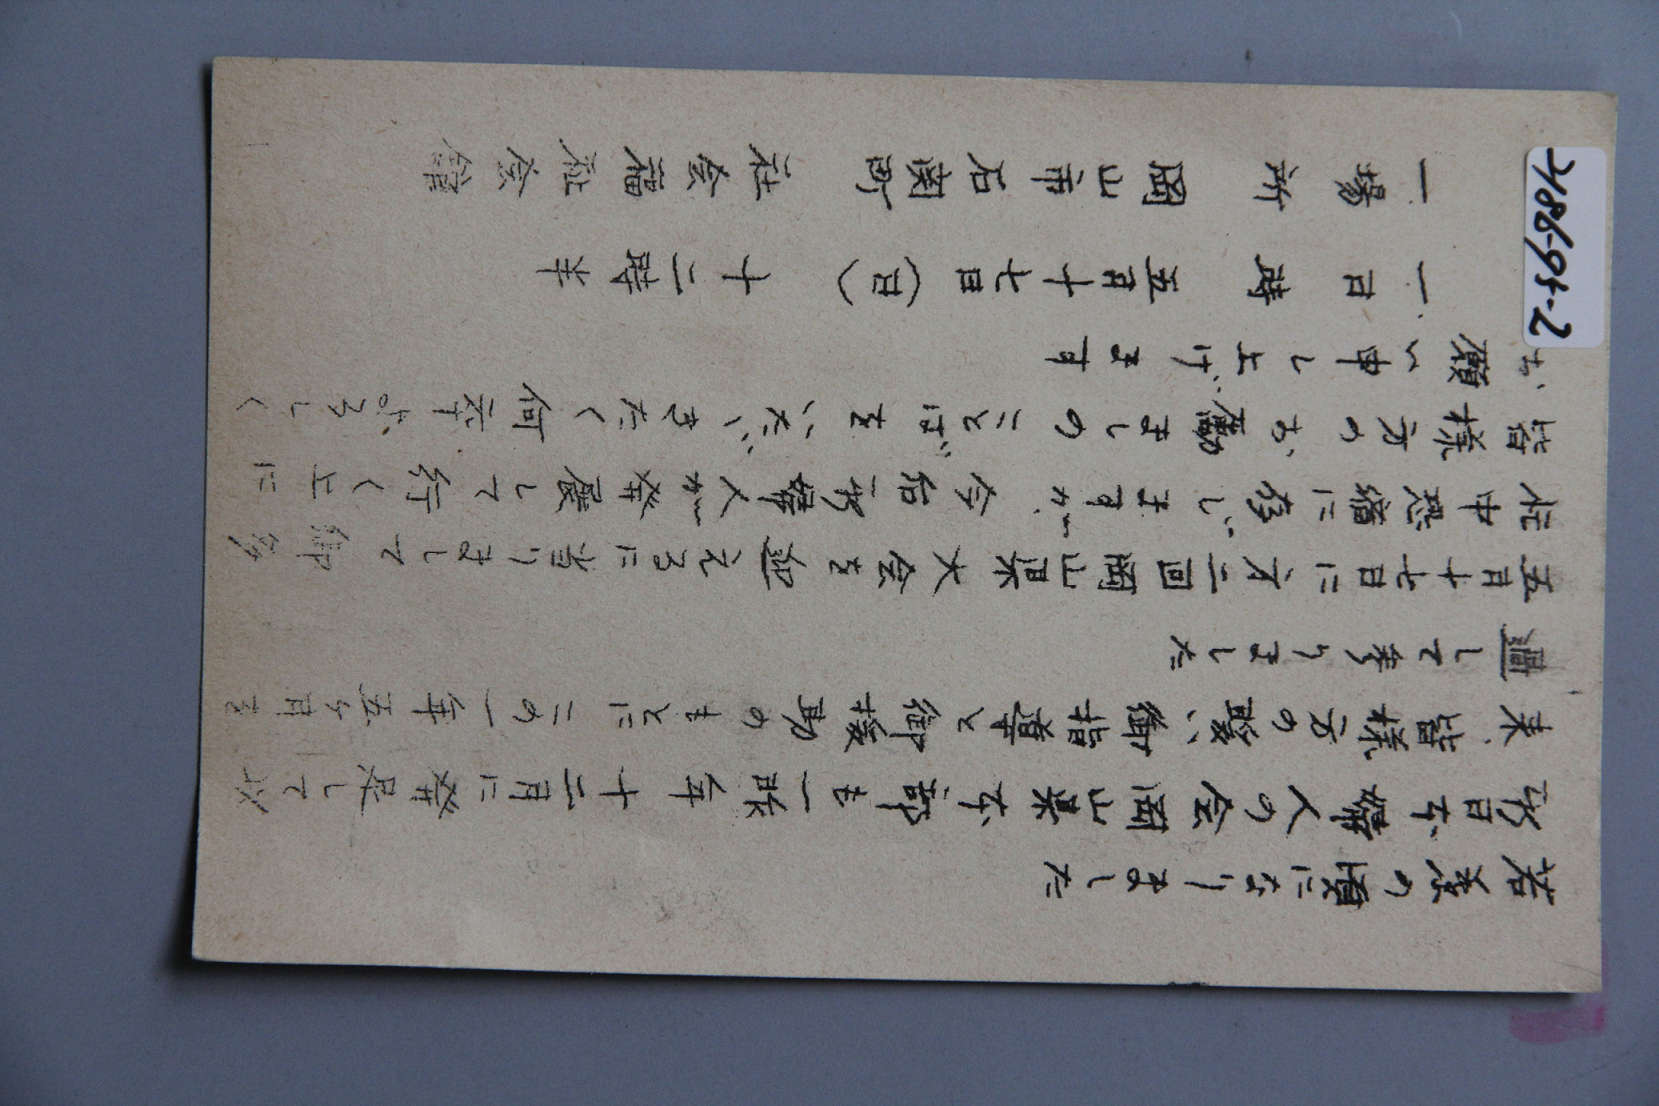 若葉の頃になりました
新日本婦人の会岡山県本部も一昨年十二月に発足して以
来、皆様方の暖い御指導と御援助のもとにこの一年五ヶ月を
過して参りました
五月十七日に才二回岡山県大会を迎えるに当りまして御多
忙中恐縮に存じますが、今后新婦人が発展して行く上に
皆様方のお励ましのことばをいただきたく何卒よろしく
お願い申し上げます
一、日時 五月十七日(日) 十二時半
一、場所 岡山市石関町 社会福祉会館
2486-95-2